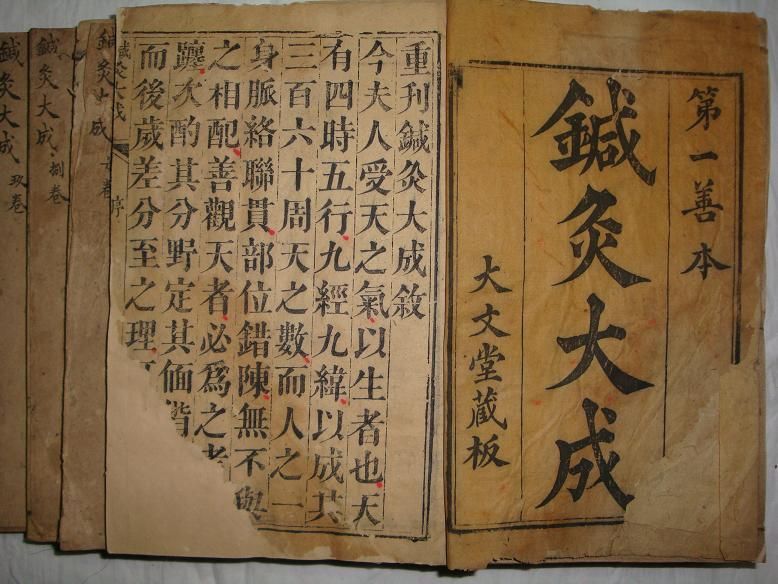 第一善本
鍼灸大成
大文堂藏板
重刊鍼灸大成敘
今夫人受天之氣以生者也天
有四時五行九經九緯以成其
三百六十周天之數而人之一
身脈絡聯貫部位錯陳無不與
之相配善觀天者必為之考
躔次酌其分野定其偭
而後歲差分至之理
鍼灸大成 序
鍼灸大成 卷
鍼灸大成 捌卷
鍼灸大成 玖卷